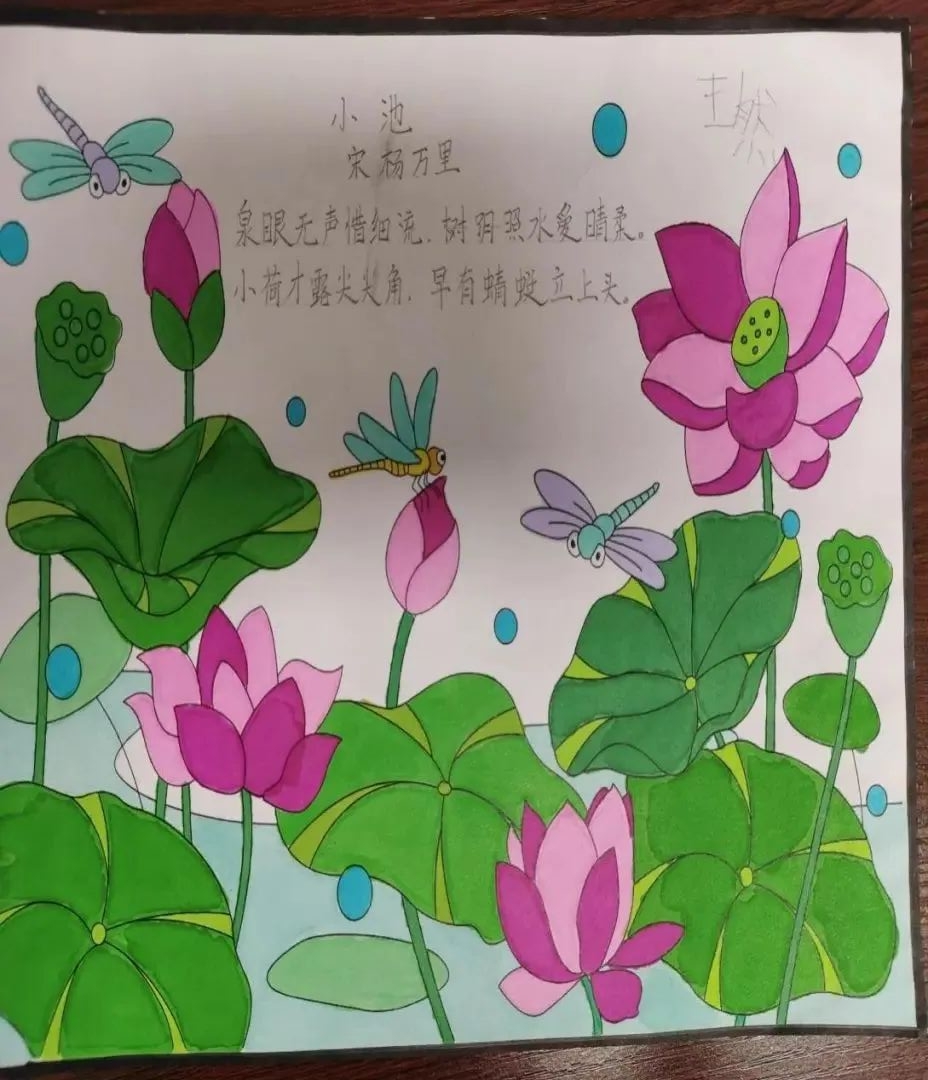 王然
小池
宋杨万里
泉眼无声惜细流,树阴照水爱晴柔。
小荷才露尖尖角,早有蜻蜓立上头。